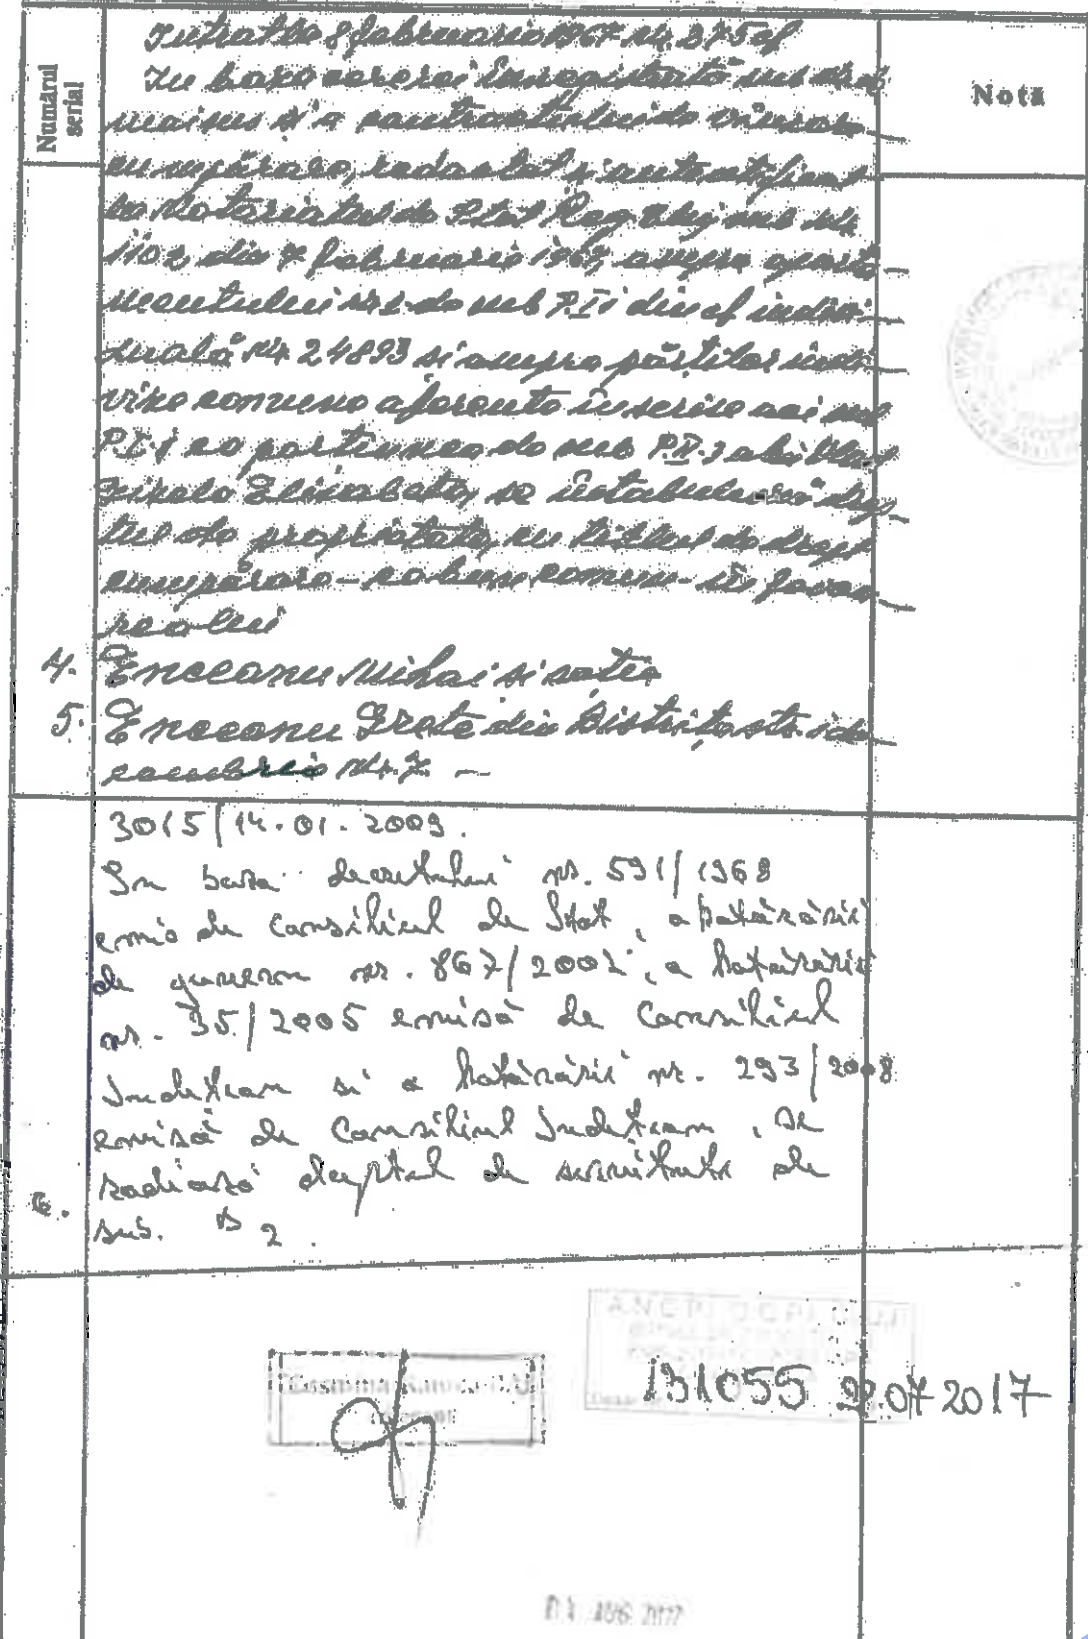 Numărul
serial
Notă
Intrat la 8 februarie 1967 nr. 375 cf
În baza cererei înregistrată sub nr. de
mai sus și a contractului de vînzare
cumpărare, redactat și autentificat
de Notariatul de Stat Reg. Cluj sub nr.
1102 din 7 februarie 1967, asupra aparta
mentului nr. de sub P.I.1 din cf indivi
duală nr. 24893 și asupra părților indi
vize comune aferente înscrise aci sub
P.I.1 ca porțiunea de sub P.II.3 a lui
Elisabeta, se intabulează drep
tul de proprietate, cu titlul de drept
cumpărare – ca bun comun – în favoa
rea lui
4. Enceanu Mihai și soția
5. Enceanu Grete din Bistrița str. 1 de
cembrie Nr. 7. —
3015/14.01.2009.
În baza decretului nr. 591/1968
emis de Consiliul de Stat, a hotărârii
de guvern nr. 867/2002, a hotărârii
nr. 35/2005 emisă de Consiliul
Județean și a hotărârii nr. 293/2008
emisă de Consiliul Județean, se
radiază dreptul de servitute de
6. sub. B 2.
ANCPI OCPI CLUJ
131055 22.07 2017